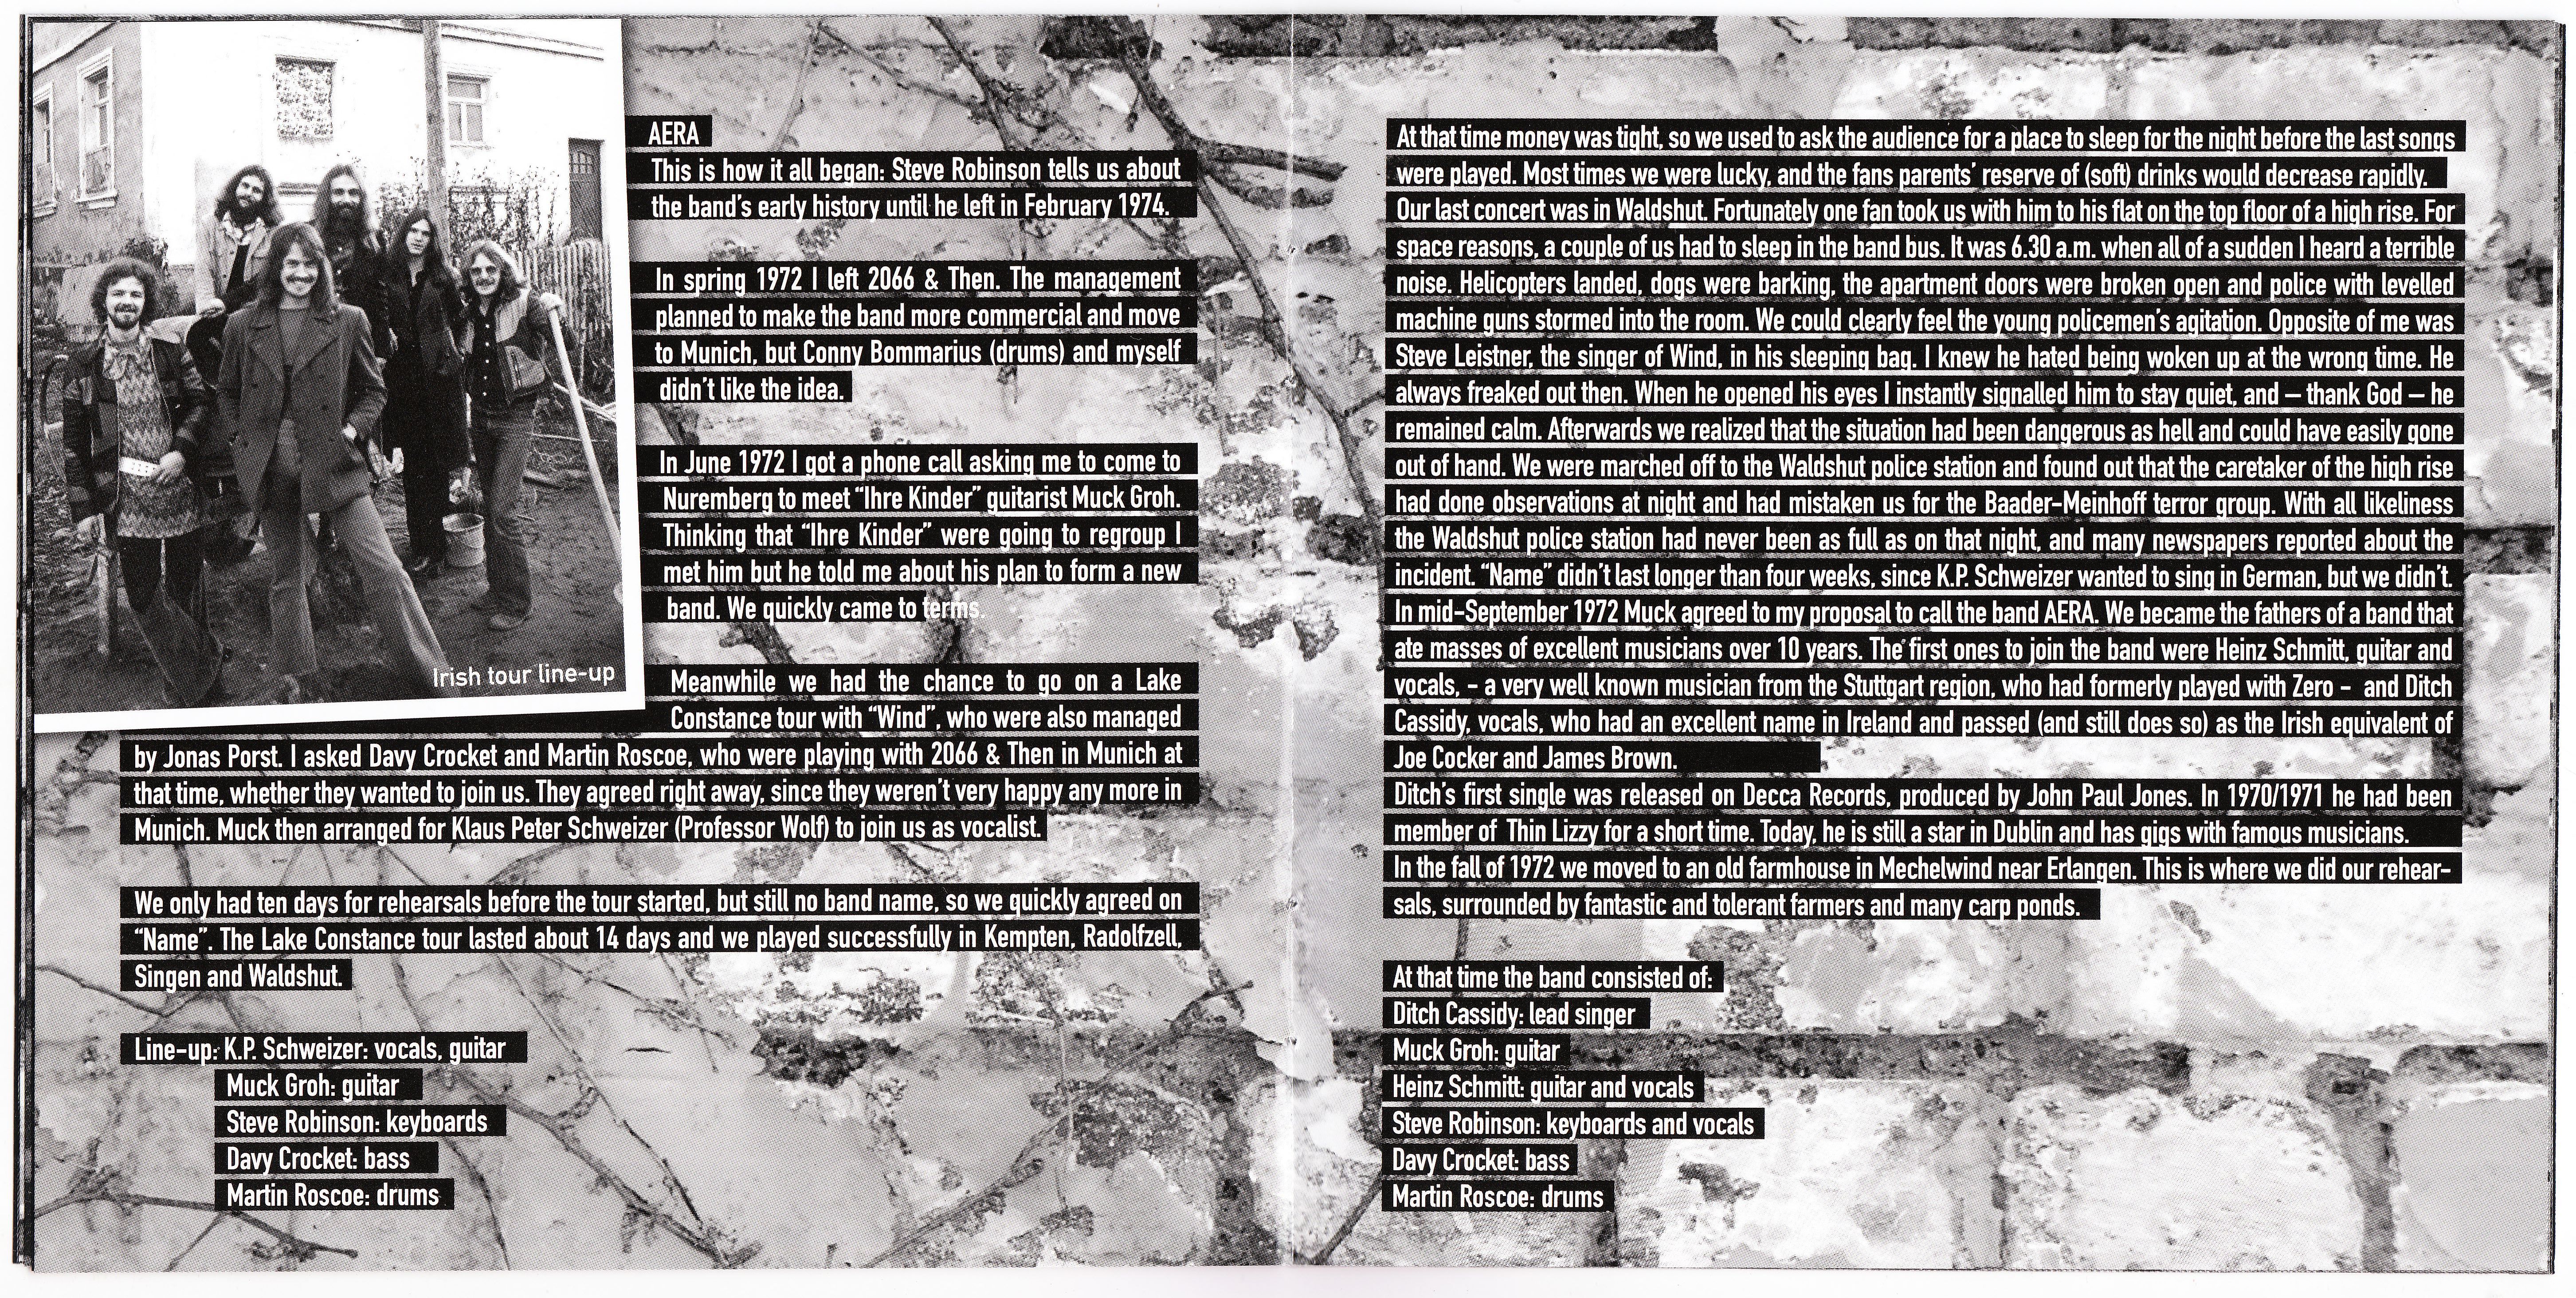 Irish tour line-up
AERA
This is how it all began: Steve Robinson tells us about
the band's early history until he left in February 1974.
In spring 1972 I left 2066 & Then. The management
planned to make the band more commercial and move
to Munich, but Conny Bommarius (drums) and myself
didn't like the idea.
In June 1972 I got a phone call asking me to come to
Nuremberg to meet "Ihre Kinder" guitarist Muck Groh.
Thinking that "Ihre Kinder" were going to regroup I
met him but he told me about his plan to form a new
band. We quickly came to terms.
Meanwhile we had the chance to go on a Lake
Constance tour with "Wind", who were also managed
by Jonas Porst. I asked Davy Crocket and Martin Roscoe, who were playing with 2066 & Then in Munich at
that time, whether they wanted to join us. They agreed right away, since they weren't very happy any more in
Munich. Muck then arranged for Klaus Peter Schweizer (Professor Wolf) to join us as vocalist.
We only had ten days for rehearsals before the tour started, but still no band name, so we quickly agreed on
"Name". The Lake Constance tour lasted about 14 days and we played successfully in Kempten, Radolfzell,
Singen and Waldshut.
Line-up: K.P. Schweizer: vocals, guitar
Muck Groh: guitar
Steve Robinson: keyboards
Davy Crocket: bass
Martin Roscoe: drums
At that time money was tight, so we used to ask the audience for a place to sleep for the night before the last songs
were played. Most times we were lucky, and the fans parents' reserve of (soft) drinks would decrease rapidly.
Our last concert was in Waldshut. Fortunately one fan took us with him to his flat on the top floor of a high rise. For
space reasons, a couple of us had to sleep in the band bus. It was 6.30 a.m. when all of a sudden I heard a terrible
noise. Helicopters landed, dogs were barking, the apartment doors were broken open and police with levelled
machine guns stormed into the room. We could clearly feel the young policemen's agitation. Opposite of me was
Steve Leistner, the singer of Wind, in his sleeping bag. I knew he hated being woken up at the wrong time. He
always freaked out then. When he opened his eyes I instantly signalled him to stay quiet, and – thank God – he
remained calm. Afterwards we realized that the situation had been dangerous as hell and could have easily gone
out of hand. We were marched off to the Waldshut police station and found out that the caretaker of the high rise
had done observations at night and had mistaken us for the Baader-Meinhoff terror group. With all likeliness
the Waldshut police station had never been as full as on that night, and many newspapers reported about the
incident. "Name" didn't last longer than four weeks, since K.P. Schweizer wanted to sing in German, but we didn't.
In mid-September 1972 Muck agreed to my proposal to call the band AERA. We became the fathers of a band that
ate masses of excellent musicians over 10 years. The first ones to join the band were Heinz Schmitt, guitar and
vocals, - a very well known musician from the Stuttgart region, who had formerly played with Zero - and Ditch
Cassidy, vocals, who had an excellent name in Ireland and passed (and still does so) as the Irish equivalent of
Joe Cocker and James Brown.
Ditch's first single was released on Decca Records, produced by John Paul Jones. In 1970/1971 he had been
member of Thin Lizzy for a short time. Today, he is still a star in Dublin and has gigs with famous musicians.
In the fall of 1972 we moved to an old farmhouse in Mechelwind near Erlangen. This is where we did our rehear-
sals, surrounded by fantastic and tolerant farmers and many carp ponds.
At that time the band consisted of:
Ditch Cassidy: lead singer
Muck Groh: guitar
Heinz Schmitt: guitar and vocals
Steve Robinson: keyboards and vocals
Davy Crocket: bass
Martin Roscoe: drums